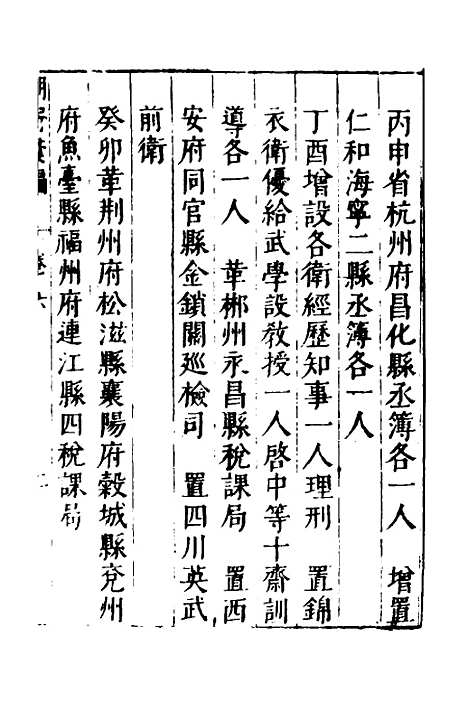 丙申省杭州府昌化縣丞簿各一人　增置
仁和海寧二縣丞簿各一人
丁酉增設各衛經歷知事一人理刑　置錦
衣衛優給武學設教授一人啓中等十齋訓
導各一人　革郴州永昌縣稅課局　置西
安府同官縣金鎖關巡檢司　置四川英武
前衛
癸卯革荆州府松滋縣襄陽府穀城縣兗州
府魚臺縣福州府連江縣四稅課局
卷六